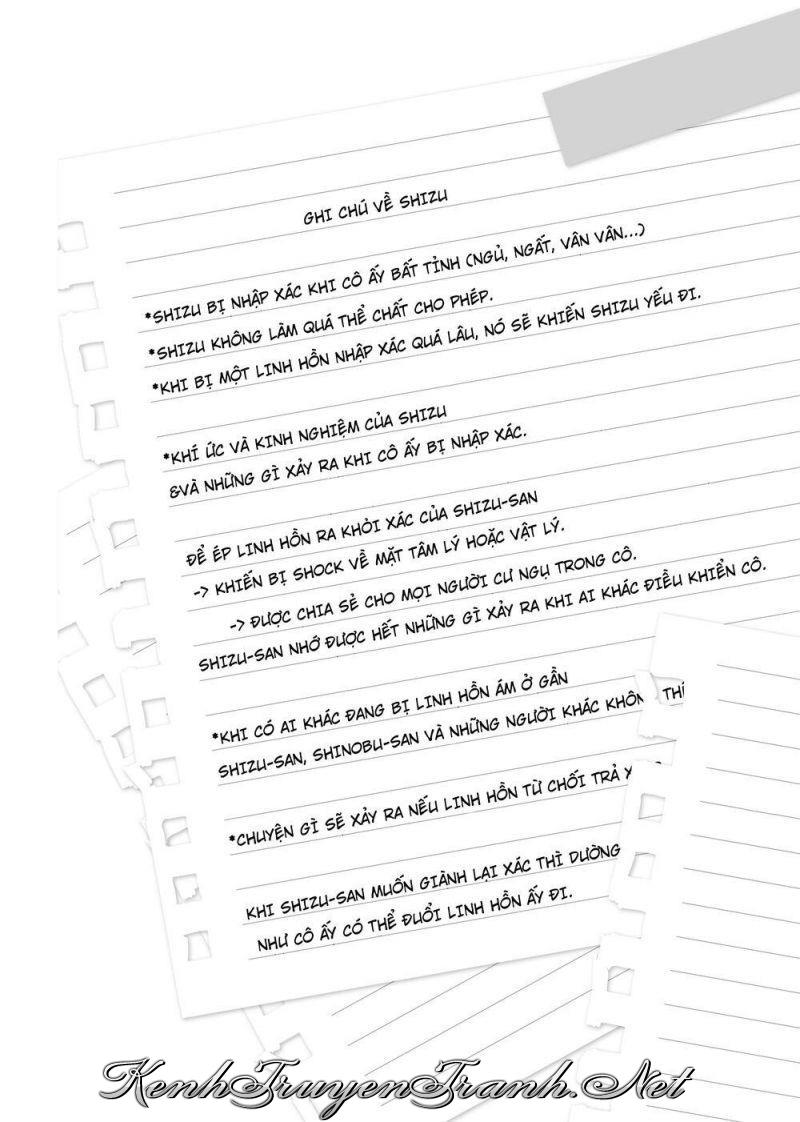 GHI CHÚ VỀ SHIZU
*SHIZU BỊ NHẬP XÁC KHI CÔ ẤY BẤT TỈNH (NGỦ, NGẤT, VÂN VÂN...)
*SHIZU KHÔNG LÀM QUÁ THỂ CHẤT CHO PHÉP.
*KHI BỊ MỘT LINH HỒN NHẬP XÁC QUÁ LÂU, NÓ SẼ KHIẾN SHIZU YẾU ĐI.
*KHÍ ỨC VÀ KINH NGHIỆM CỦA SHIZU
&VÀ NHỮNG GÌ XẢY RA KHI CÔ ẤY BỊ NHẬP XÁC.
ĐỂ ÉP LINH HỒN RA KHỎI XÁC CỦA SHIZU-SAN
-> KHIẾN BỊ SHOCK VỀ MẶT TÂM LÝ HOẶC VẬT LÝ.
-> ĐƯỢC CHIA SẺ CHO MỌI NGƯỜI CƯ NGỤ TRONG CÔ.
SHIZU-SAN NHỚ ĐƯỢC HẾT NHỮNG GÌ XẢY RA KHI AI KHÁC ĐIỀU KHIỂN CÔ.
*KHI CÓ AI KHÁC ĐANG BỊ LINH HỒN ÁM Ở GẦN
SHIZU-SAN, SHINOBU-SAN VÀ NHỮNG NGƯỜI KHÁC
*CHUYỆN GÌ SẼ XẢY RA NẾU LINH HỒN TỪ CHỐI TRẢ
KHI SHIZU-SAN MUỐN GIÀNH LẠI XÁC THÌ DƯỜNG
NHƯ CÔ ẤY CÓ THỂ ĐUỔI LINH HỒN ẤY ĐI.
KenhTruyenTranh.Net